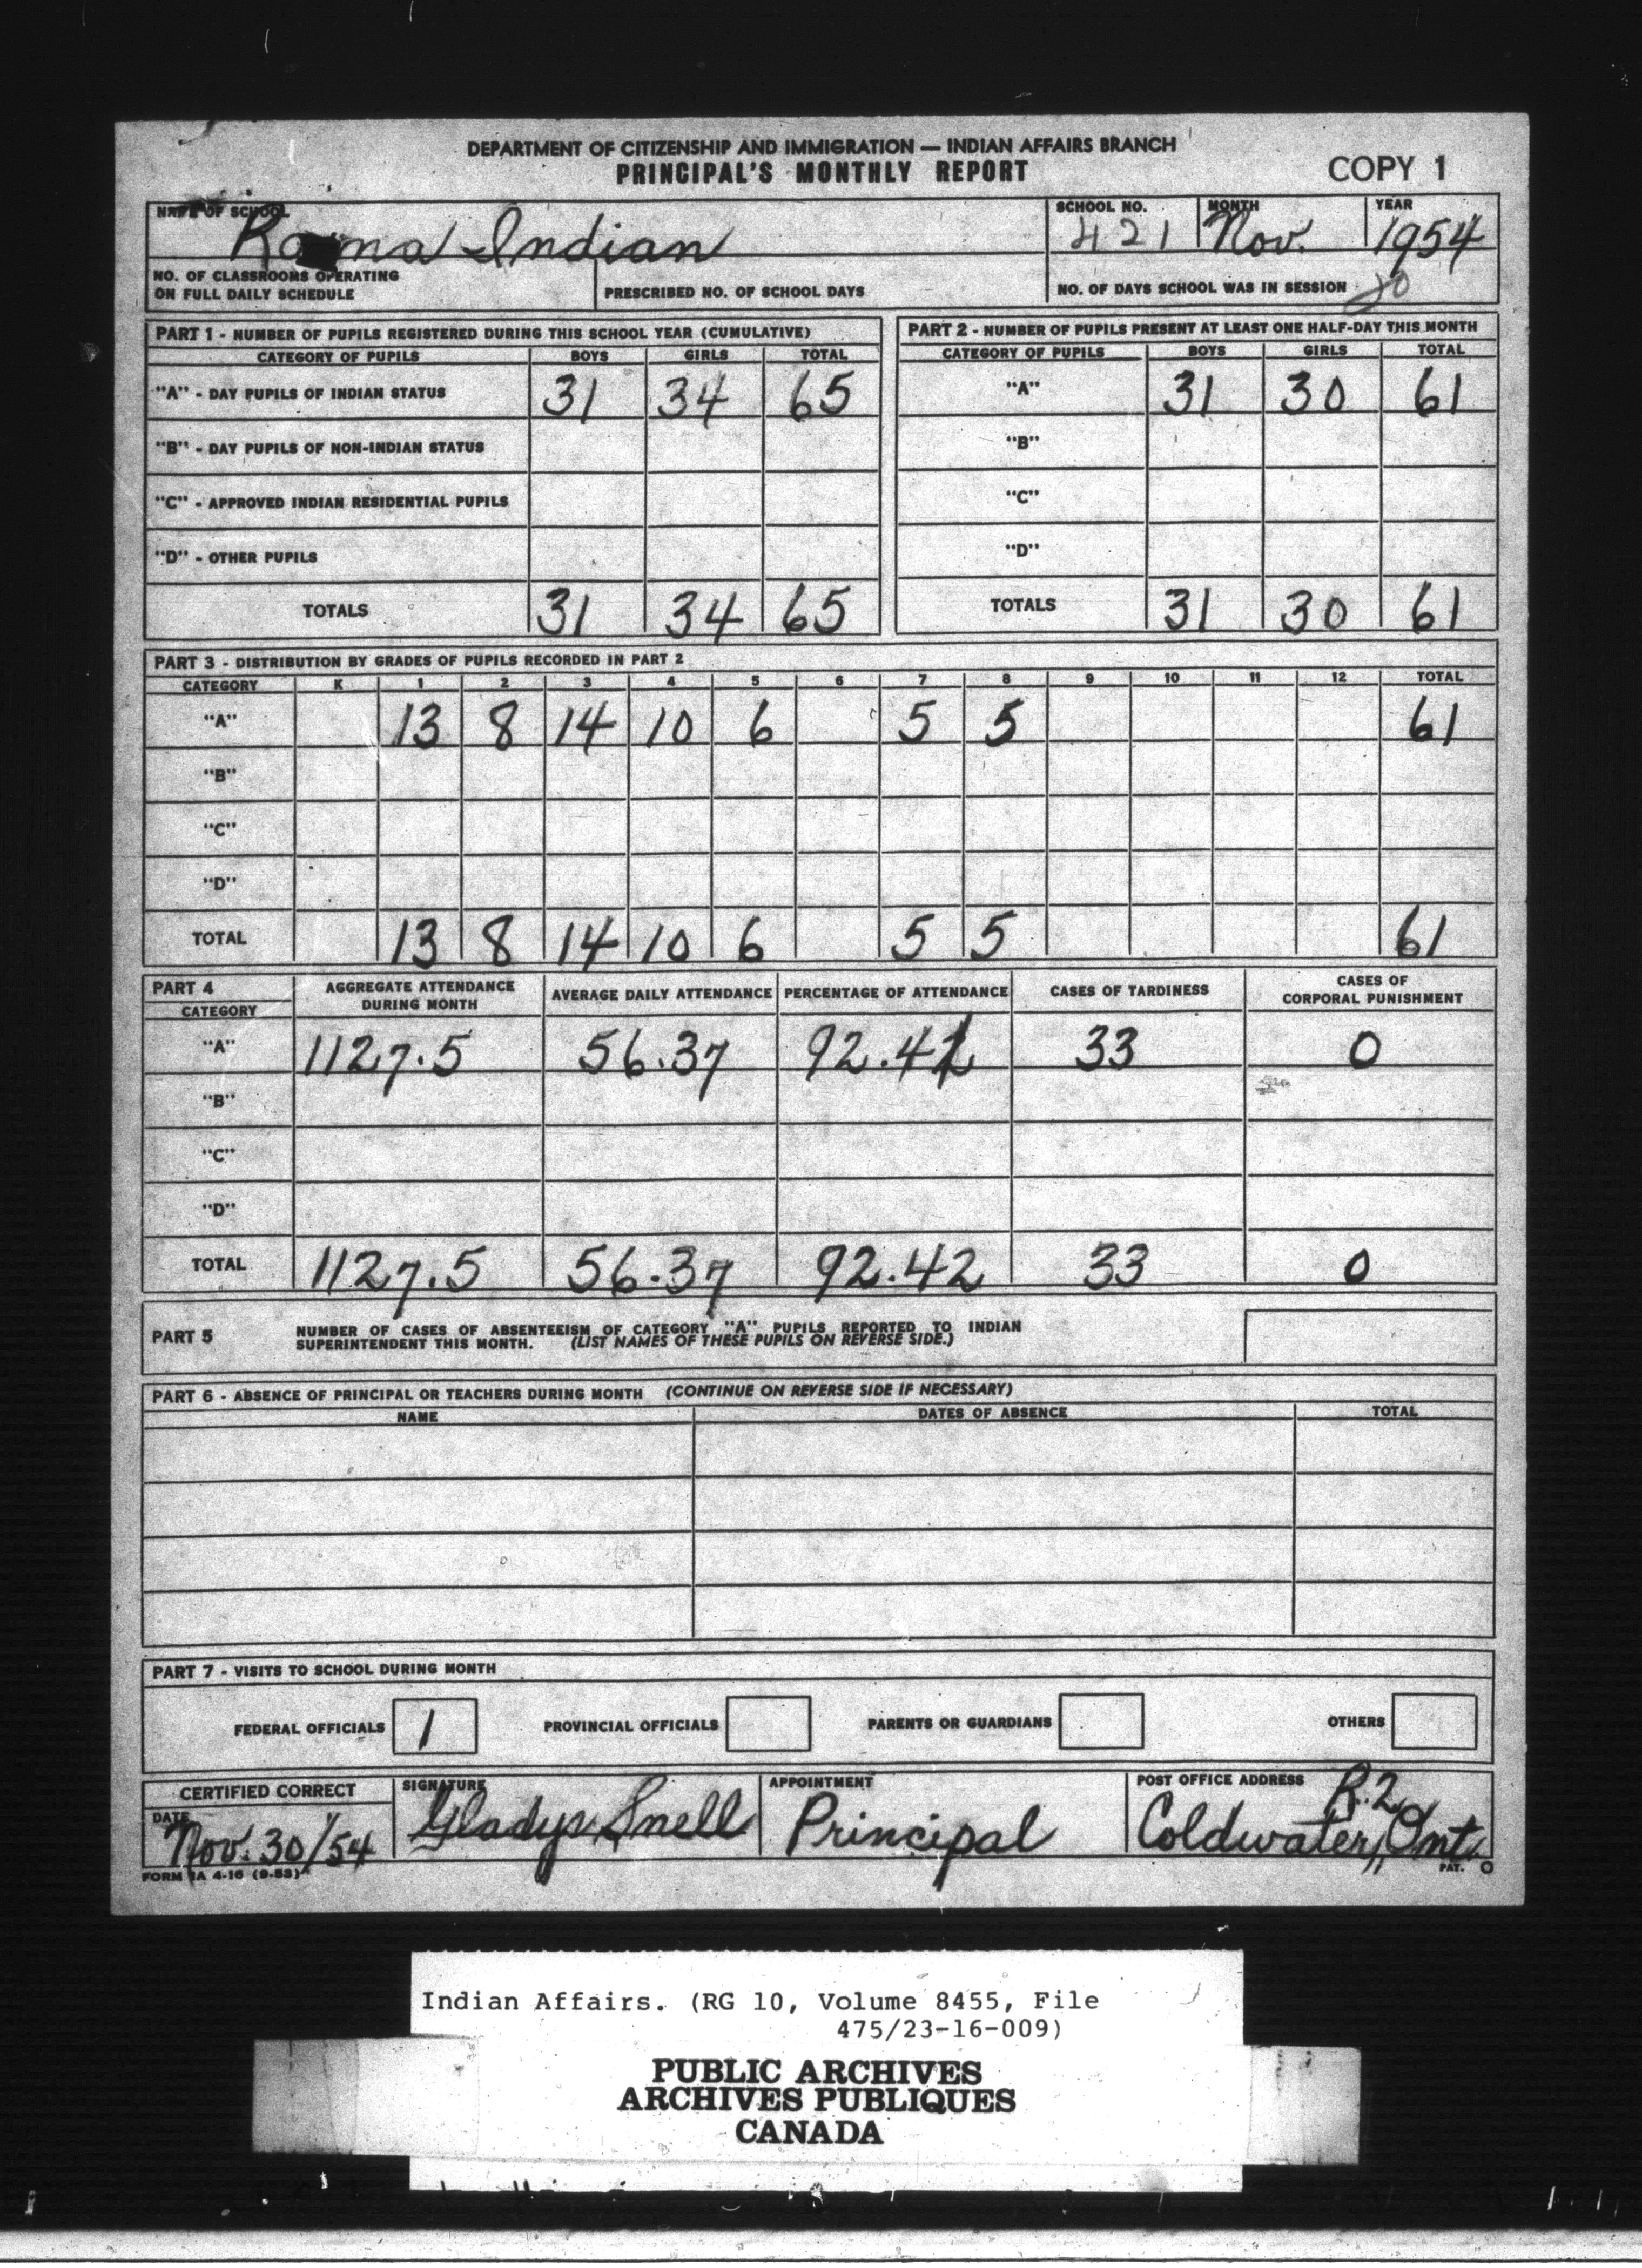 DEPARTMENT OF CITIZENSHIP AND IMMIGRATION — INDIAN AFFAIRS BRANCH
PRINCIPAL'S MONTHLY REPORT COPY 1
NAME OF SCHOOL Rama Indian SCHOOL NO. 421 MONTH Nov. YEAR 1954
NO. OF CLASSROOMS OPERATING
ON FULL DAILY SCHEDULE PRESCRIBED NO. OF SCHOOL DAYS NO. OF DAYS SCHOOL WAS IN SESSION 20
PART 1 - NUMBER OF PUPILS REGISTERED DURING THIS SCHOOL YEAR (CUMULATIVE)
CATEGORY OF PUPILS BOYS GIRLS TOTAL
"A" - DAY PUPILS OF INDIAN STATUS 31 34 65
"B" - DAY PUPILS OF NON-INDIAN STATUS
"C" - APPROVED INDIAN RESIDENTIAL PUPILS
"D" - OTHER PUPILS
TOTALS 31 34 65
PART 2 - NUMBER OF PUPILS PRESENT AT LEAST ONE HALF-DAY THIS MONTH
CATEGORY OF PUPILS BOYS GIRLS TOTAL
"A" 31 30 61
"B"
"C"
"D"
TOTALS 31 30 61
PART 3 - DISTRIBUTION BY GRADES OF PUPILS RECORDED IN PART 2
CATEGORY K 1 2 3 4 5 6 7 8 9 10 11 12 TOTAL
"A" 13 8 14 10 6 5 5 61
"B"
"C"
"D"
TOTAL 13 8 14 10 6 5 5 61
PART 4
CATEGORY AGGREGATE ATTENDANCE DURING MONTH AVERAGE DAILY ATTENDANCE PERCENTAGE OF ATTENDANCE CASES OF TARDINESS CASES OF CORPORAL PUNISHMENT
"A" 1127.5 56.37 92.42 33 0
"B"
"C"
"D"
TOTAL 1127.5 56.37 92.42 33 0
PART 5 NUMBER OF CASES OF ABSENTEEISM OF CATEGORY "A" PUPILS REPORTED TO INDIAN
SUPERINTENDENT THIS MONTH. (LIST NAMES OF THESE PUPILS ON REVERSE SIDE.)
PART 6 - ABSENCE OF PRINCIPAL OR TEACHERS DURING MONTH (CONTINUE ON REVERSE SIDE IF NECESSARY)
NAME DATES OF ABSENCE TOTAL
PART 7 - VISITS TO SCHOOL DURING MONTH
FEDERAL OFFICIALS 1 PROVINCIAL OFFICIALS PARENTS OR GUARDIANS OTHERS
CERTIFIED CORRECT
DATE Nov. 30/54
SIGNATURE Gladys Snell
APPOINTMENT Principal
POST OFFICE ADDRESS R.2
Coldwater, Ont.
FORM IA 4-16 (9-53) PAT. O
Indian Affairs. (RG 10, Volume 8455, File
475/23-16-009)
PUBLIC ARCHIVES
ARCHIVES PUBLIQUES
CANADA